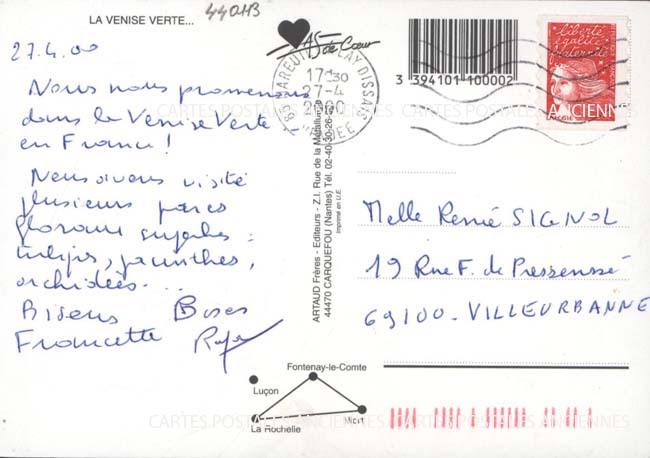 LA VENISE VERTE...
440HB
27.4.00
Nous nous promenons
dans la Venise Verte
en France !
Nous avons visité
plusieurs parcs
floraux superbes :
tulipes, jacinthes,
orchidées...
Bisous Bises
Francette
AS de Cœur
3 394101 100002
85 MAREUIL S/LAY DISSAIS
17H30
27-4
2000
VENDEE
Liberté
égalité
fraternité
LA POSTE
ARTAUD Frères - Editeurs - Z.I. Rue de la Métallurgie
44470 CARQUEFOU (Nantes) Tél. 02-40-30-26-
Imprimé en U.E.
Melle Renée SIGNOL
19 Rue F. de Pressensé
69100 - VILLEURBANNE
Fontenay-le-Comte
Luçon
La Rochelle
Niort
CARTES POSTALES ANCIENNES
CARTES POSTALES ANCIENNES